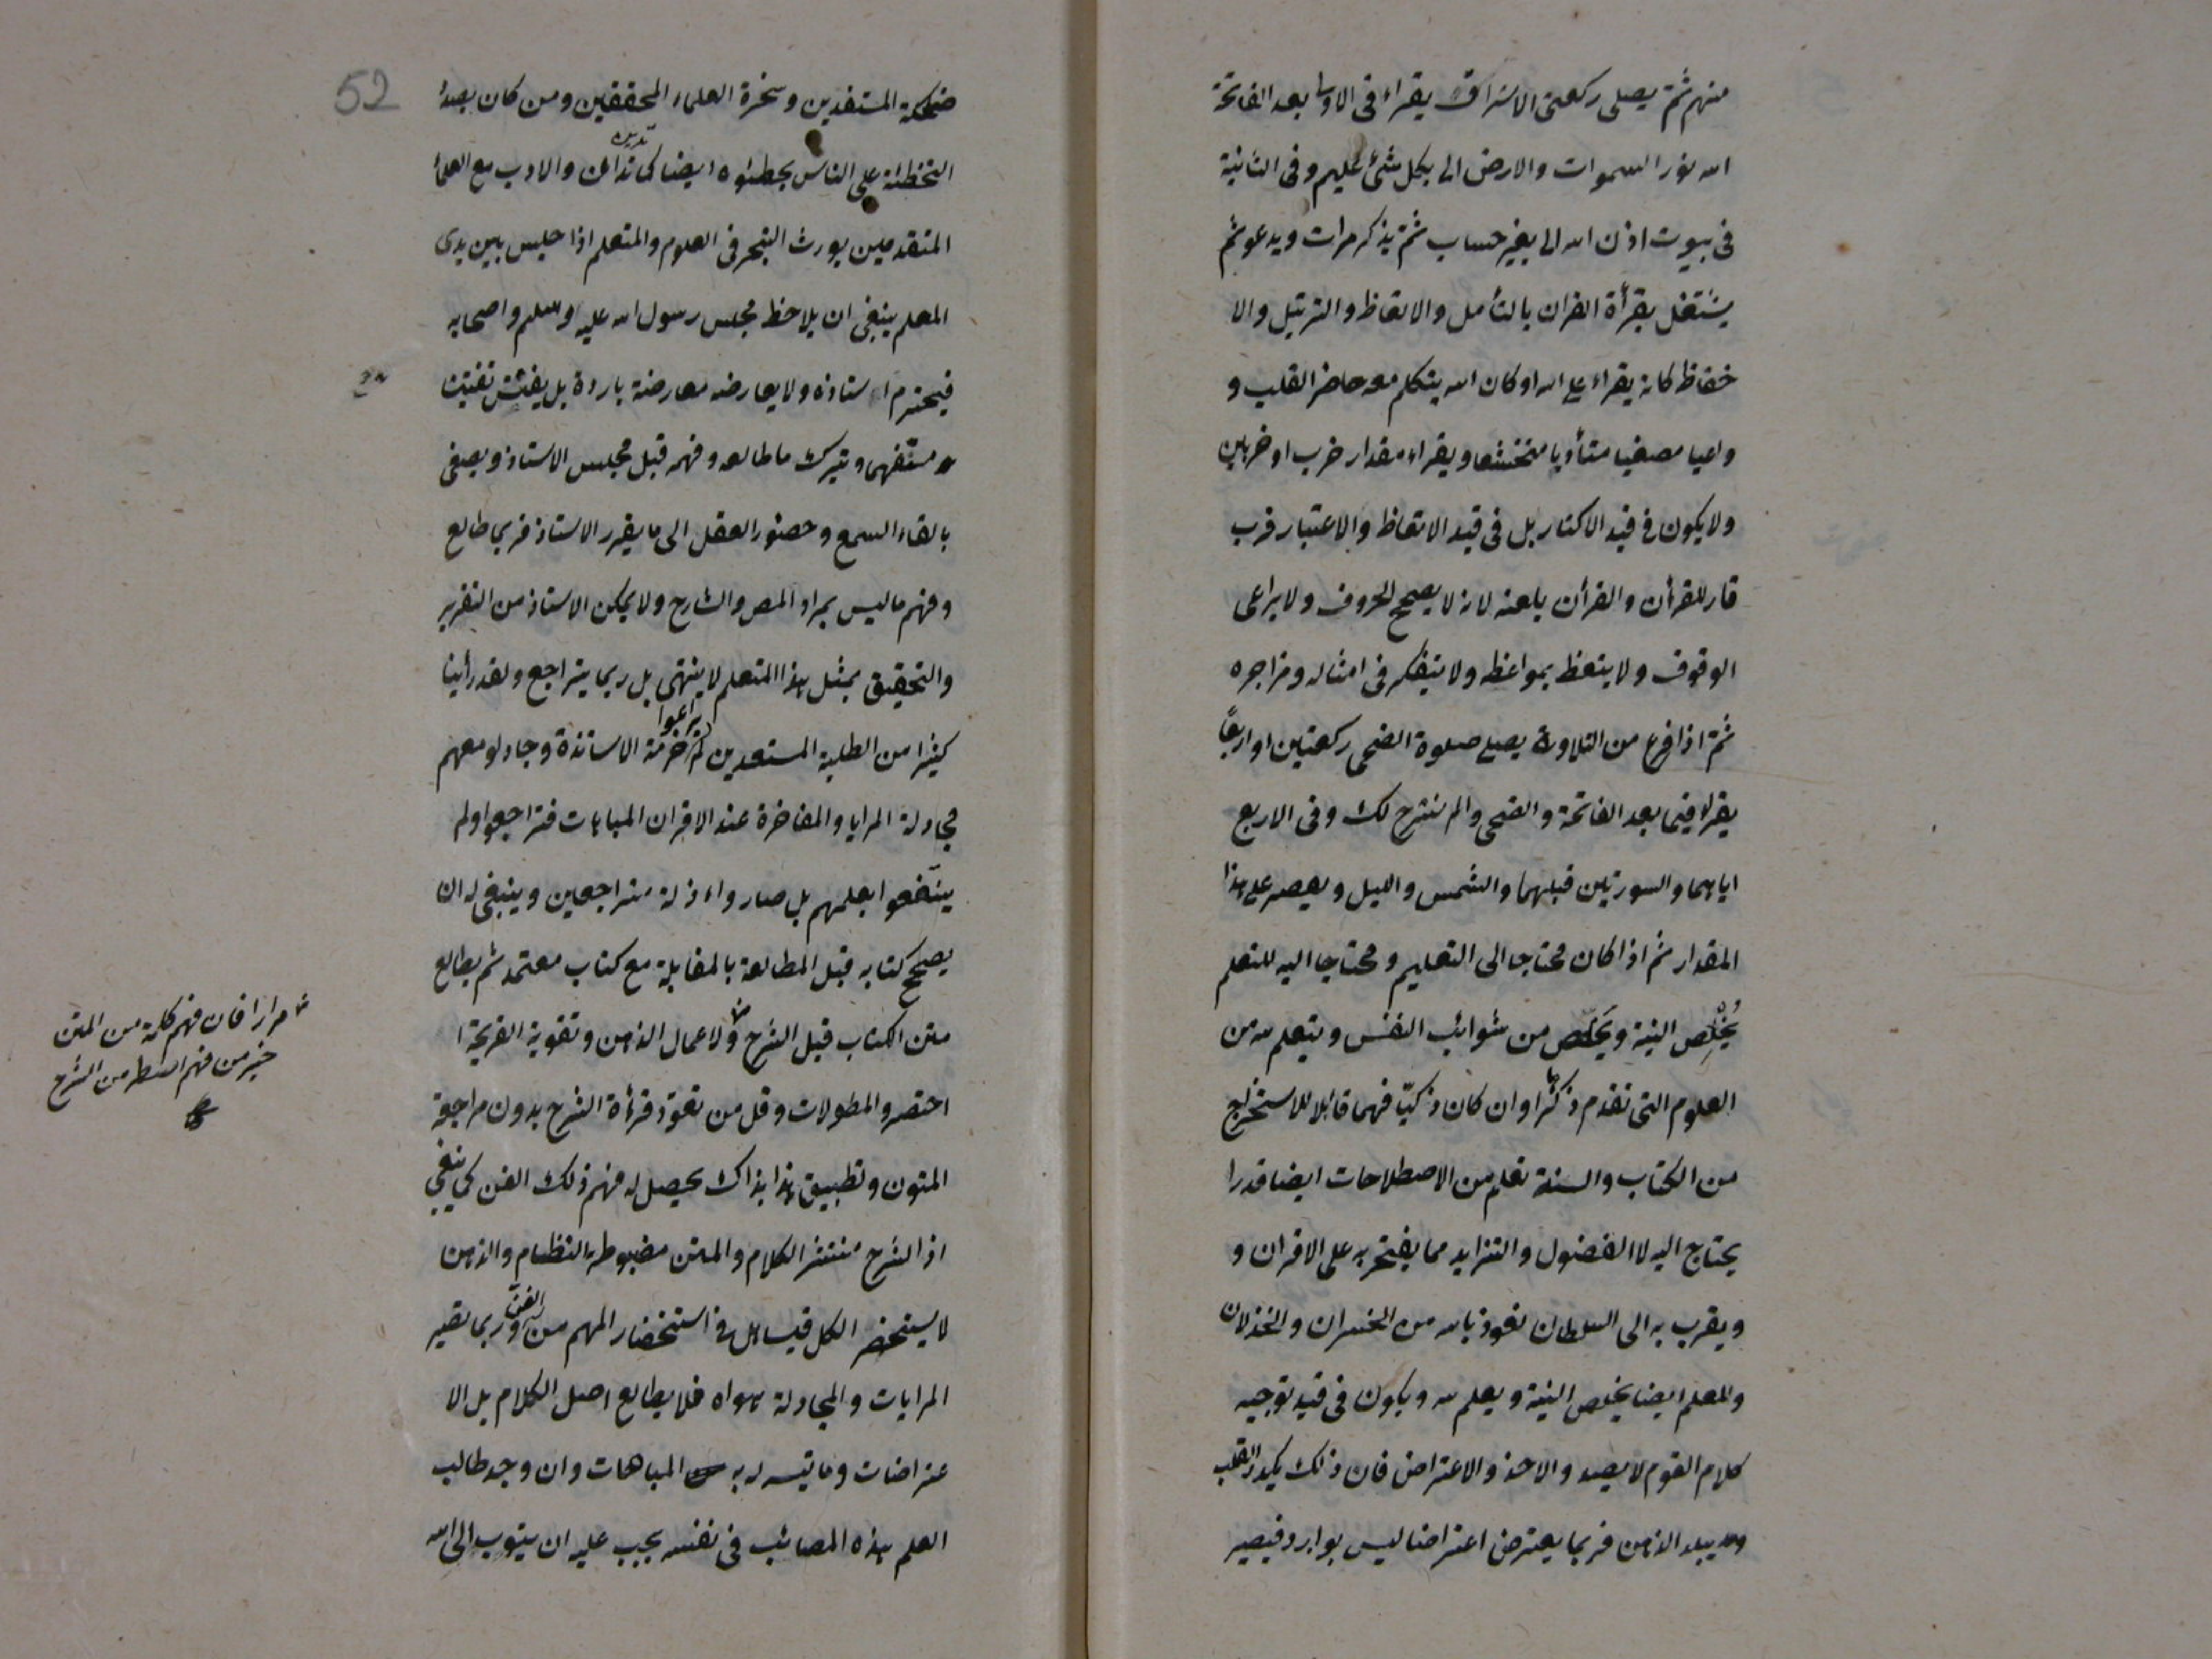 منهم ثم يصلى ركعتى الاشراق يقراء فى الاولى بعد الفاتحة
الله نور السموات والارض الى بكل شئ عليم وفى الثانية
فى بيوت اذن الله الى بغير حساب ثم يذكر مرات ويدعو ثم
يشتغل بقرأة القران بالتأمل والاتعاظ والترتيل والا
تعاظ كانه يقراء على الله او كان الله يتكلم معه حاضر القلب و
واعيا مصغيا متأدبا متخشعا ويقراء مقدار حزب او حزبين
ولا يكون فى قيد الاكثار بل فى قيد الاتعاظ والاعتبار فرب
قار للقرأن والقرأن يلعنه لانه لا يصحح الحروف ولا يراعى
الوقوف ولا يتعظ بمواعظه ولا يتفكر فى امثاله ومزاجره
ثم اذا فرغ من التلاوة يصلى صلوة الضحى ركعتين او اربعا
يقراء فيها بعد الفاتحة والضحى والم نشرح لك وفى الاربع
اياهما والسورتين قبلهما والشمس والليل ويقصر على هذا
المقدار ثم اذا كان محتاجا الى التعليم ومحتاجا اليه للتعلم
يُخْلِص النية ويَخْلُص من شوائب النفس ويتعلم لله من
العلوم التى تقدم ذكرها وان كان ذكيّا فهما قابلا للاستخراج
من الكتاب والسنة تعلم من الاصطلاحات ايضا قدرا
يحتاج اليه لا الفضول والتزايد مما يفتخر به على الاقران و
ويقرب به الى السلطان نعوذ بالله من الخسران والخذلان
والمعلم ايضا يخلص النية ويعلم لله ويكون فى قيد توجيه
كلام القوم لا بصدد الاخذ والاعتراض فان ذلك يكدر القلب
ويبلد الذهن فربما يعترض اعتراضا ليس بوارد فيصير
52
ضحكة المستفدين وسخرة العلماء المحققين ومن كان بصدد
التخطئة على الناس يخطئوه ايضا كما تدين تدان والادب مع العلماء
المتقدمين يورث التبحر فى العلوم والمتعلم اذا جلس بين يدى
المعلم ينبغى ان يلاحظ مجلس رسول الله عليه وسلم واصحابه
فيحترم استاذه ولا يعارضه معارضة باردة بل يفتش تفتيش
مستفهما ويترك ما طالعه وفهمه قبل مجلس الاستاذ ويصغى
بالقاء السمع وحضور العقل الى ما يقرر الاستاذ فربما طالع
وفهم ما ليس بمراد المص والشارح ولا يمكن الاستاذ من التقرير
والتحقيق بمثل هذا المتعلم لا ينتهى بل ربما يتراجع ولقد رأينا
كثيرا من الطلبة المستعدين لم يراعوا حرمة الاساتذة وجادلو معهم
مجادلة المرايا والمفاخرة عند الاقران المباهات فتراجعوا ولم
ينتفعوا بعلمهم بل صاروا اذلة متراجعين وينبغى له ان
يصحح كتابه قبل المطالعة بالمقابلة مع كتاب معتمد ثم يطالع
متن الكتاب قبل الشرح ولاعمال الذهن وتقوية القريحة ا
مرارا فان فهم كلمة من المتن
خير من فهم اسطر من الشرح
اختصروا المطولات وقل من تعود قرأة الشرح بدون مراجعة
المتون وتطبيق هذا بذاك يحصل له فهم ذلك الفن كما ينبغى
اذ الشرح منتشر الكلام والمتن مضبوطة النظام والذهن
لا يستحضر الكل فيساهل فى استحضار المهم من الفن وربما تصير
المرايات والمجادلة هواه فلا يطالع اصل الكلام بل الا
عتراضات وما تيسر له به المباهات وان وجد طالب
العلم هذه المصائب فى نفسه يجب عليه ان يتوب الى الله